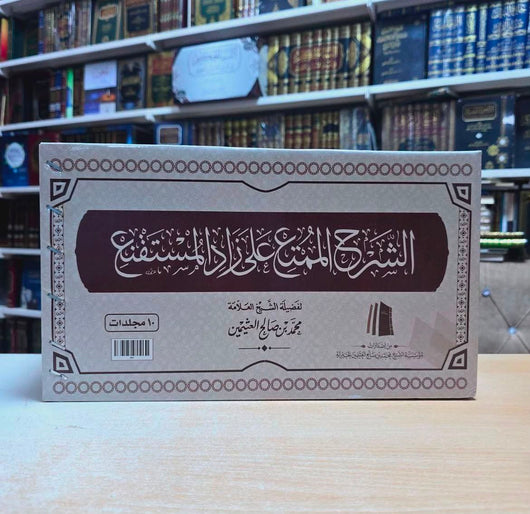 الشرح الممتع على زاد المستقنع
لفضيلة الشيخ العلامة
محمد بن صالح العثيمين
١٠ مجلدات
من إصدارات
مؤسسة الشيخ محمد بن صالح العثيمين الخيرية